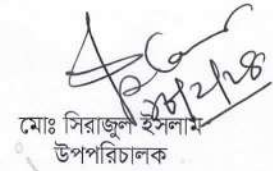 মোঃ সিরাজুল ইসলাম
উপপরিচালক